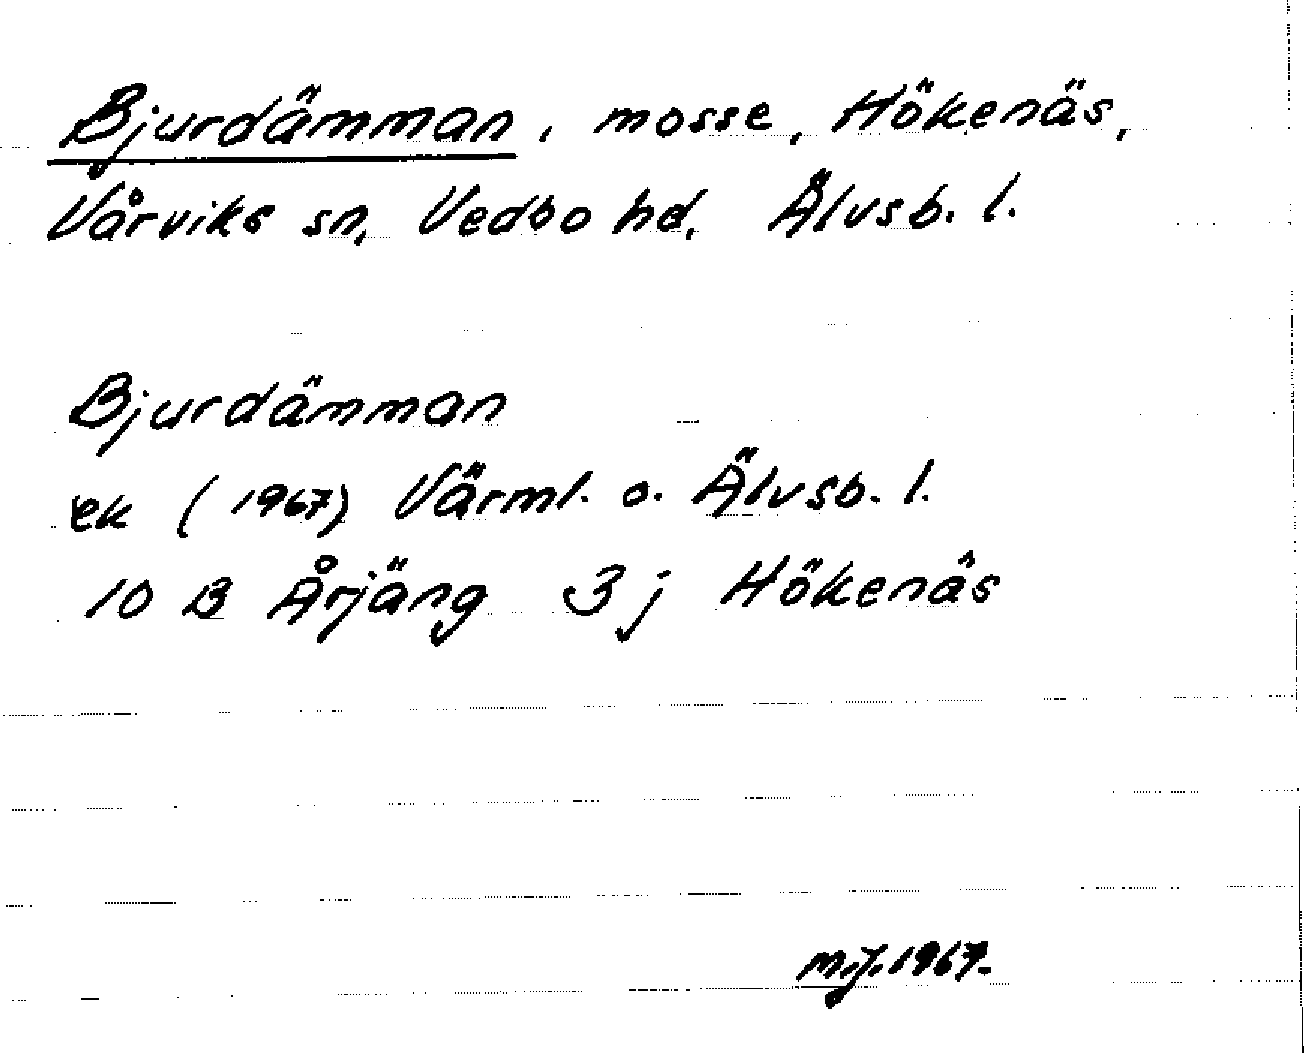 Bjurdämman, mosse, Hökenäs,
Vårviks sn, Vedbo hd, Älvsb. l.
Bjurdämman
ek (1967) Värml. o. Älvsb. l.
10 B Årjäng 3 j Hökenäs
M.J. 1967.